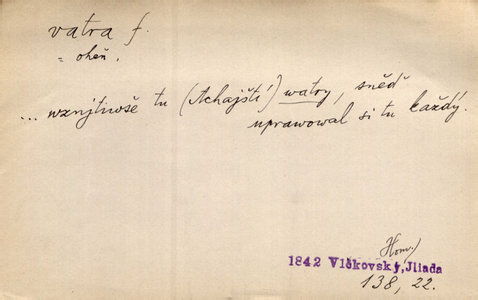 vatra f.
= oheň.
... wznjtiwše tu (Achajští) watry, sněď
uprawowal si tu každý.
(Hom.)
1842 Vlčkovský, Iliada
138, 22.